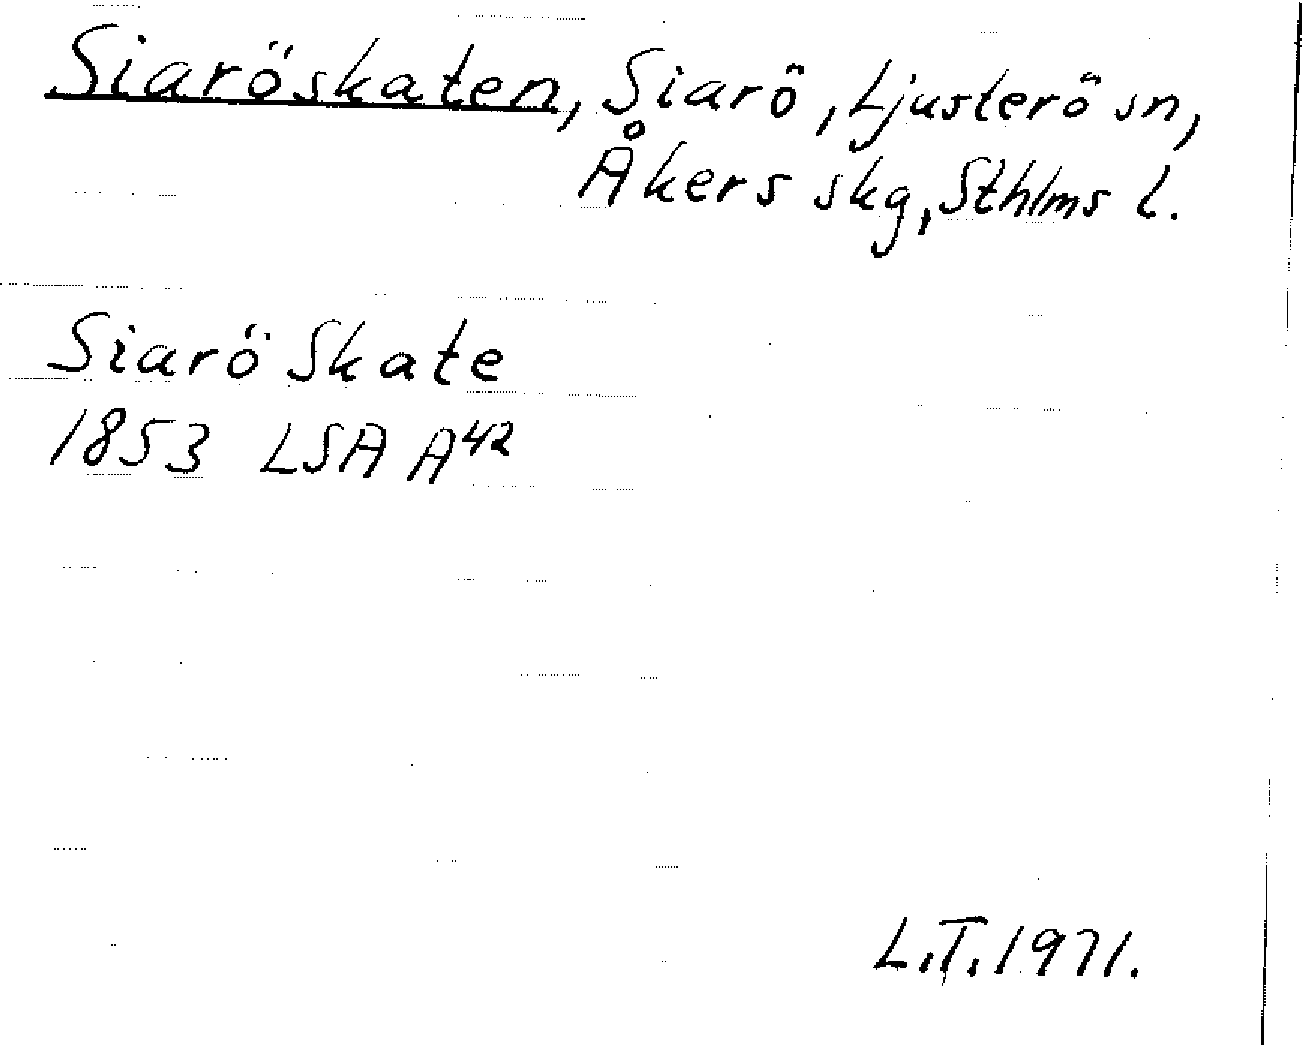 Siaröskaten, Siarö, Ljusterö sn,
Åkers skg, Sthlms l.
Siarö Skate
1853 LSA A42
L.T. 1971.